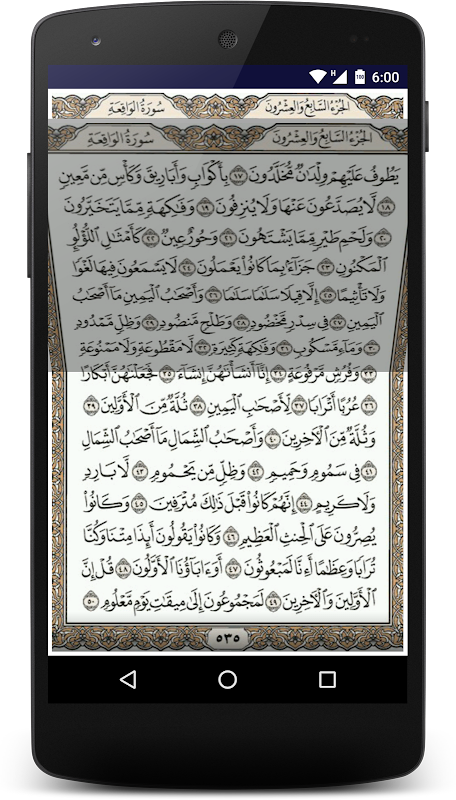 H 100 6:00
الجُزْءُ السَّابِعُ وَالعِشْرُونَ سُورَةُ الوَاقِعَةِ
الجُزْءُ السَّابِعُ وَالعِشْرُونَ سُورَةُ الوَاقِعَةِ
يَطُوفُ عَلَيْهِمْ وِلْدَٰنٌ مُّخَلَّدُونَ ١٧ بِأَكْوَابٍ وَأَبَارِيقَ وَكَأْسٍ مِّن مَّعِينٍ
١٨ لَّا يُصَدَّعُونَ عَنْهَا وَلَا يُنزِفُونَ ١٩ وَفَٰكِهَةٍ مِّمَّا يَتَخَيَّرُونَ
٢٠ وَلَحْمِ طَيْرٍ مِّمَّا يَشْتَهُونَ ٢١ وَحُورٌ عِينٌ ٢٢ كَأَمْثَٰلِ ٱللُّؤْلُؤِ
ٱلْمَكْنُونِ ٢٣ جَزَآءًۢ بِمَا كَانُوا۟ يَعْمَلُونَ ٢٤ لَا يَسْمَعُونَ فِيهَا لَغْوًا
وَلَا تَأْثِيمًا ٢٥ إِلَّا قِيلًا سَلَٰمًا سَلَٰمًا ٢٦ وَأَصْحَٰبُ ٱلْيَمِينِ مَآ أَصْحَٰبُ
ٱلْيَمِينِ ٢٧ فِى سِدْرٍ مَّخْضُودٍ ٢٨ وَطَلْحٍ مَّنضُودٍ ٢٩ وَظِلٍّ مَّمْدُودٍ
٣٠ وَمَآءٍ مَّسْكُوبٍ ٣١ وَفَٰكِهَةٍ كَثِيرَةٍ ٣٢ لَّا مَقْطُوعَةٍ وَلَا مَمْنُوعَةٍ
٣٣ وَفُرُشٍ مَّرْفُوعَةٍ ٣٤ إِنَّآ أَنشَأْنَٰهُنَّ إِنشَآءً ٣٥ فَجَعَلْنَٰهُنَّ أَبْكَارًا
٣٦ عُرُبًا أَتْرَابًا ٣٧ لِّأَصْحَٰبِ ٱلْيَمِينِ ٣٨ ثُلَّةٌ مِّنَ ٱلْأَوَّلِينَ ٣٩
وَثُلَّةٌ مِّنَ ٱلْءَاخِرِينَ ٤٠ وَأَصْحَٰبُ ٱلشِّمَالِ مَآ أَصْحَٰبُ ٱلشِّمَالِ
٤١ فِى سَمُومٍ وَحَمِيمٍ ٤٢ وَظِلٍّ مِّن يَحْمُومٍ ٤٣ لَّا بَارِدٍ
وَلَا كَرِيمٍ ٤٤ إِنَّهُمْ كَانُوا۟ قَبْلَ ذَٰلِكَ مُتْرَفِينَ ٤٥ وَكَانُوا۟
يُصِرُّونَ عَلَى ٱلْحِنثِ ٱلْعَظِيمِ ٤٦ وَكَانُوا۟ يَقُولُونَ أَئِذَا مِتْنَا وَكُنَّا
تُرَابًا وَعِظَٰمًا أَءِنَّا لَمَبْعُوثُونَ ٤٧ أَوَءَابَآؤُنَا ٱلْأَوَّلُونَ ٤٨ قُلْ إِنَّ
ٱلْأَوَّلِينَ وَٱلْءَاخِرِينَ ٤٩ لَمَجْمُوعُونَ إِلَىٰ مِيقَٰتِ يَوْمٍ مَّعْلُومٍ ٥٠
٥٣٥